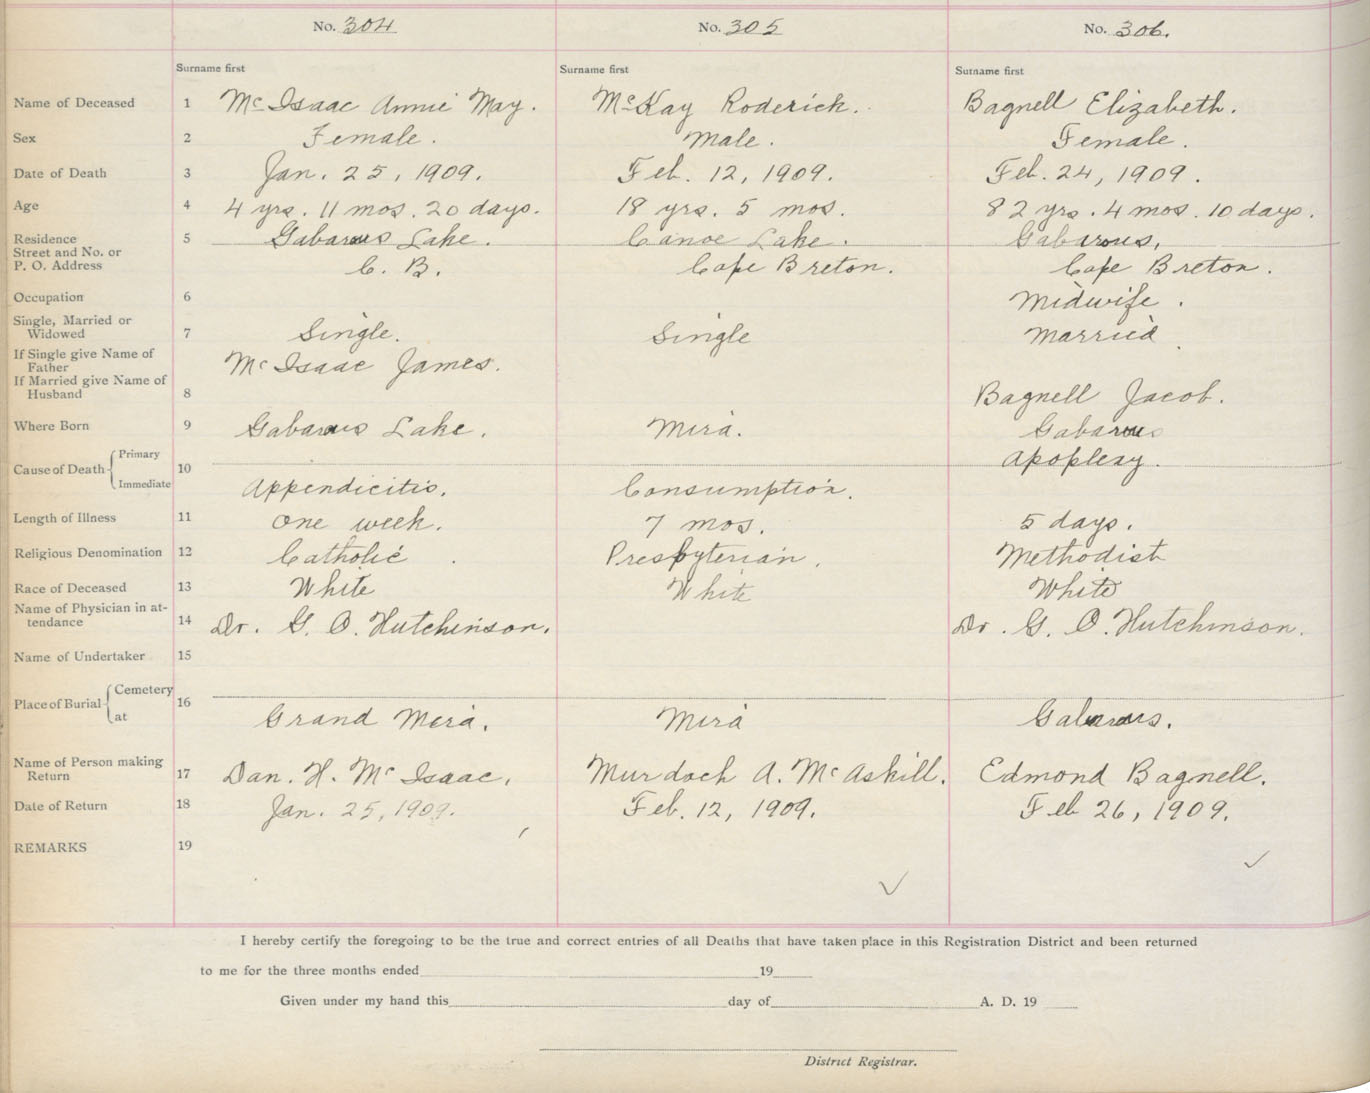 No. 304 No. 305 No. 306.
Surname first Surname first Surname first
Name of Deceased 1 Mc Isaac Annie May. McKay Roderick. Bagnell Elizabeth.
Sex 2 Female. Male. Female.
Date of Death 3 Jan. 25, 1909. Feb. 12, 1909. Feb. 24, 1909.
Age 4 4 yrs. 11 mos. 20 days. 18 yrs. 5 mos. 82 yrs. 4 mos. 10 days.
Residence 5 Gabarous Lake. Canoe Lake. Gabarous,
Street and No. or
P. O. Address C. B. Cape Breton. Cape Breton.
Occupation 6 Midwife.
Single, Married or
Widowed 7 Single. Single Married.
If Single give Name of
Father Mc Isaac James.
If Married give Name of
Husband 8 Bagnell Jacob.
Where Born 9 Gabarous Lake. Mira. Gabarous
Cause of Death Primary 10 Apoplexy.
Immediate Appendicitis. Consumption.
Length of Illness 11 One week. 7 mos. 5 days.
Religious Denomination 12 Catholic. Presbyterian. Methodist
Race of Deceased 13 White White White
Name of Physician in at-
tendance 14 Dr. G. O. Hutchinson. Dr. G. O. Hutchinson.
Name of Undertaker 15
Place of Burial Cemetery 16
at Grand Mira. Mira Gabarous.
Name of Person making
Return 17 Dan. H. Mc Isaac. Murdoch A. Mc Askill. Edmond Bagnell.
Date of Return 18 Jan. 25, 1909. Feb. 12, 1909. Feb 26, 1909.
REMARKS 19
I hereby certify the foregoing to be the true and correct entries of all Deaths that have taken place in this Registration District and been returned
to me for the three months ended 19
Given under my hand this day of A. D. 19
District Registrar.